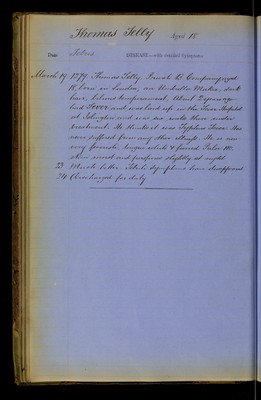 Thomas Tolly Aged 18
Date Febris DISEASE.—with detailed Symptoms.
March 19 1879. Thomas Tolly Private B Company aged
18, born in London, an Umbrella Maker, dark
hair, bilious temperament. About 2 years ago
had Fever and was laid up in the Fever Hospital
at Islington and was six weeks there under
treatment. He thinks it was Typhus Fever. Has
never suffered from any other illness. He is now
very feverish, tongue white & furred. Pulse 110.
skin moist and perspires slightly at night
23 Much better. Febrile symptoms have disappeared
24 Discharged for duty